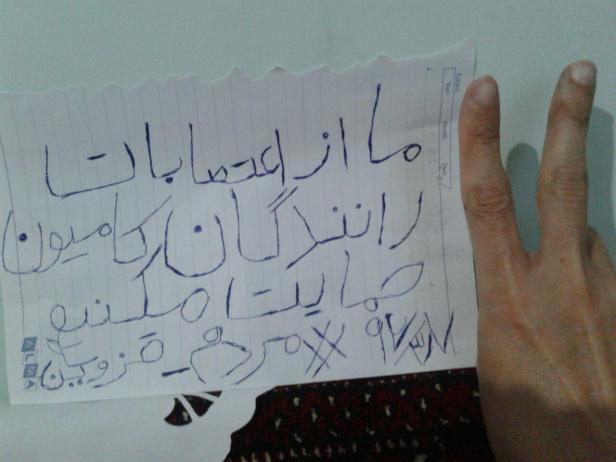 ما از اعتصابات
رانندگان کامیون
حمایت میکنیم
#مردم_قزوین